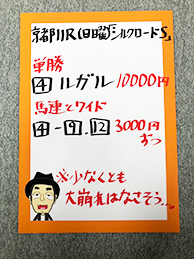 京都11R(日曜)「シルクロードS」
単勝
4 ルガル 10000円
馬連とワイド
4-9.12 3000円
ずつ
※少なくとも
大崩れはなさそう…